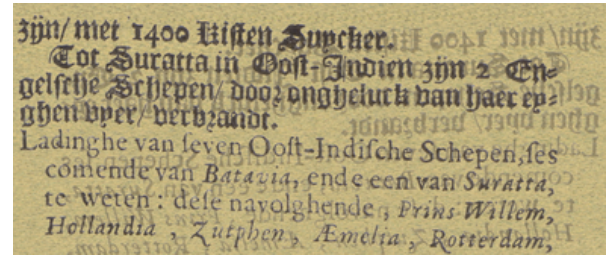 zijn/ met 1400 Kisten Suycker.
Tot Suratta in Oost-Indien zijn 2 En-
gelsche Schepen/ door ongheluck van haer ey-
ghen vyer/ verbrandt.
Ladinghe van seven Oost-Indische Schepen, ses
comende van Batavia, ende een van Suratta,
te weten: dese navolghende, Prins Willem,
Hollandia, Zutphen, Æmelia, Rotterdam,